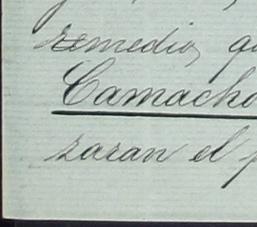 remedio, q
Camacho
zaran el p